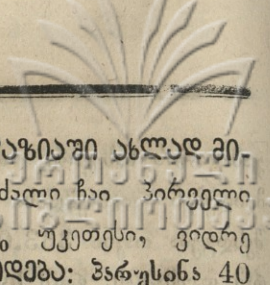 აზიაში ახლად მი-
ძალი ჩაი პირველი
უკეთესი, ვიდრე
ედება: პარუსინა 40